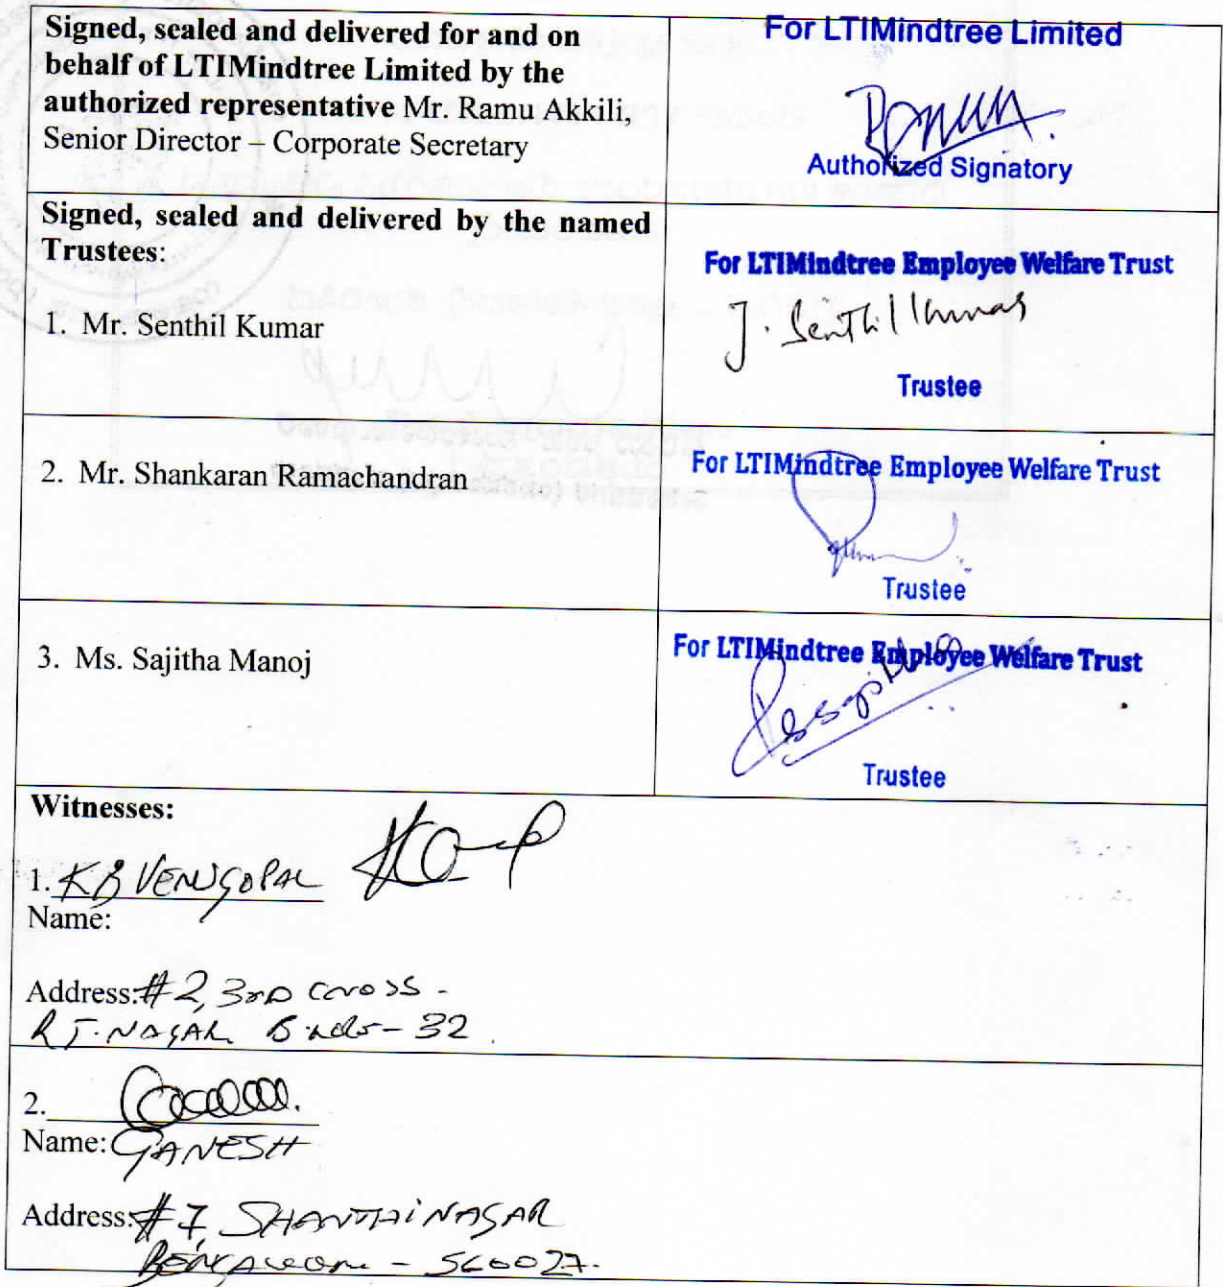 Signed, sealed and delivered for and on
behalf of LTIMindtree Limited by the
authorized representative Mr. Ramu Akkili,
Senior Director – Corporate Secretary
For LTIMindtree Limited
Authorized Signatory
Signed, sealed and delivered by the named
Trustees:
1. Mr. Senthil Kumar
For LTIMindtree Employee Welfare Trust
J. Senthil Kumar
Trustee
2. Mr. Shankaran Ramachandran
For LTIMindtree Employee Welfare Trust
Trustee
3. Ms. Sajitha Manoj
For LTIMindtree Employee Welfare Trust
Trustee
Witnesses:
1. KB VENUGOPAL
Name:
Address: #2, 3RD Cross -
RT. NAGAR - 32
2.
Name: GANESH
Address: #7, SHANTHINAGAR
- 560027.